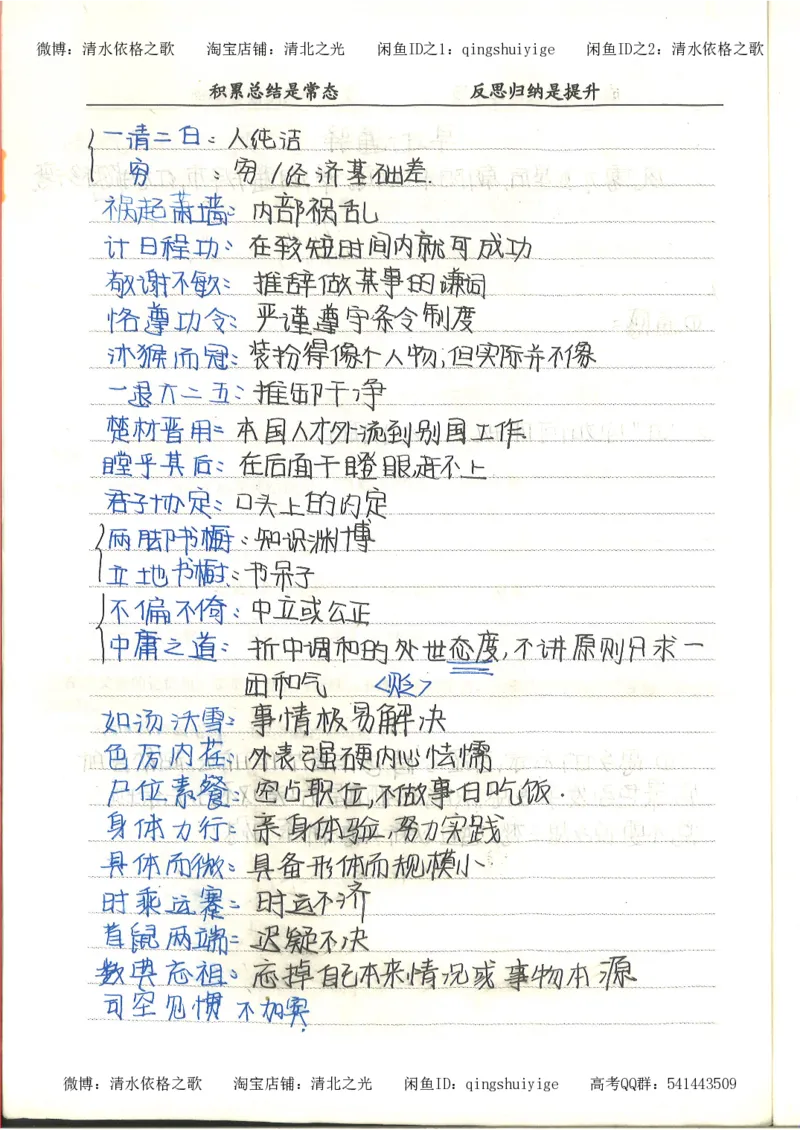 微博：清水依格之歌 淘宝店铺：清北之光 闲鱼ID之1：qingshuiyige 闲鱼ID之2：清水依格之歌
积累总结是常态 反思归纳是提升
一请二白：人纯洁
穷：穷/经济基础差.
祸起萧墙：内部祸乱
计日程功：在较短时间内就可成功
敬谢不敏：推辞做某事的谦词
恪遵功令：严谨遵守条令制度
沐猴而冠：装扮得像个人物,但实际并不像
一退六二五：推卸干净
楚材晋用：本国人才外流到别国工作.
瞠乎其后：在后面干瞪眼赶不上
君子协定：口头上的约定
两脚书橱：知识渊博
立地书橱：书呆子
不偏不倚：中立或公正
中庸之道：折中调和的处世态度,不讲原则只求一
团和气 <贬>
如汤沃雪：事情极易解决
色厉内荏：外表强硬内心怯懦
尸位素餐：空占职位,不做事白吃饭.
身体力行：亲身体验努力实践
具体而微：具备形体而规模小
时乘运蹇：时运不济
首鼠两端：迟疑不决
数典忘祖：忘掉自己本来情况或事物本源
司空见惯 不加宾.
微博：清水依格之歌 淘宝店铺：清北之光 闲鱼ID：qingshuiyige 高考QQ群：541443509